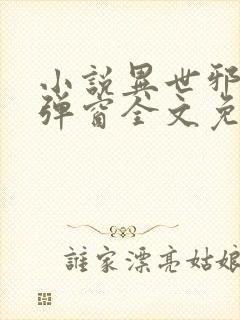 小説異世邪
彈窗全文免
誰家漂亮姑娘